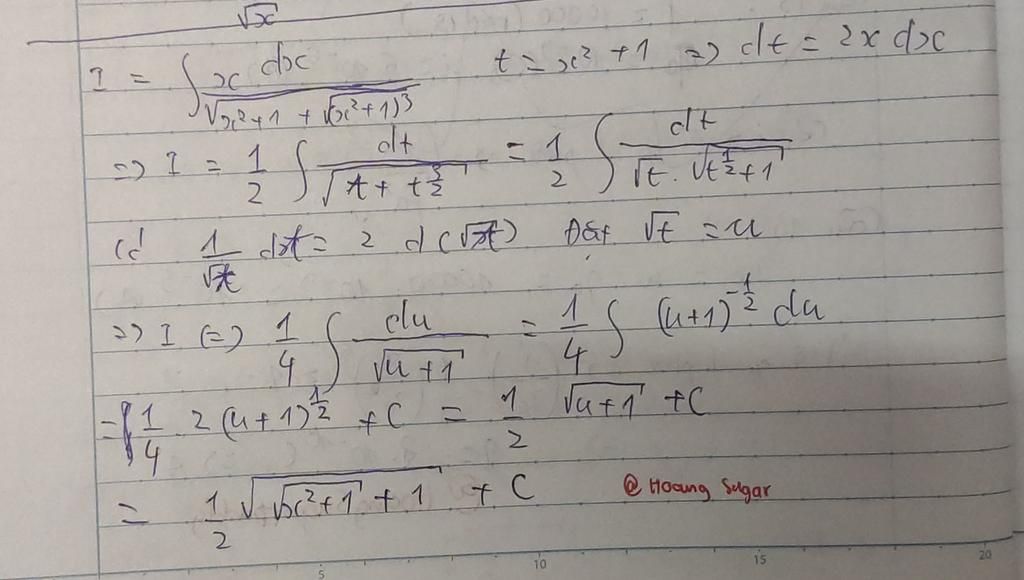 √x
I = ∫ x dx / √(x²+1 + √(x²+1)³) t = x² + 1 => dt = 2x dx
=> I = 1/2 ∫ dt / √(t + t^(3/2)) = 1/2 ∫ dt / (√t . √(t^(1/2)+1))
1/√t dt = 2 d(√t) Đặt √t = u
=> I (=) 1/4 ∫ du / √(u+1) = 1/4 ∫ (u+1)^(-1/2) du
= 1/4 2 (u+1)^(1/2) + C = 1/2 √(u+1) + C
= 1/2 √(√(x²+1) + 1) + C @ Hoang Sugar
5 10 15 20